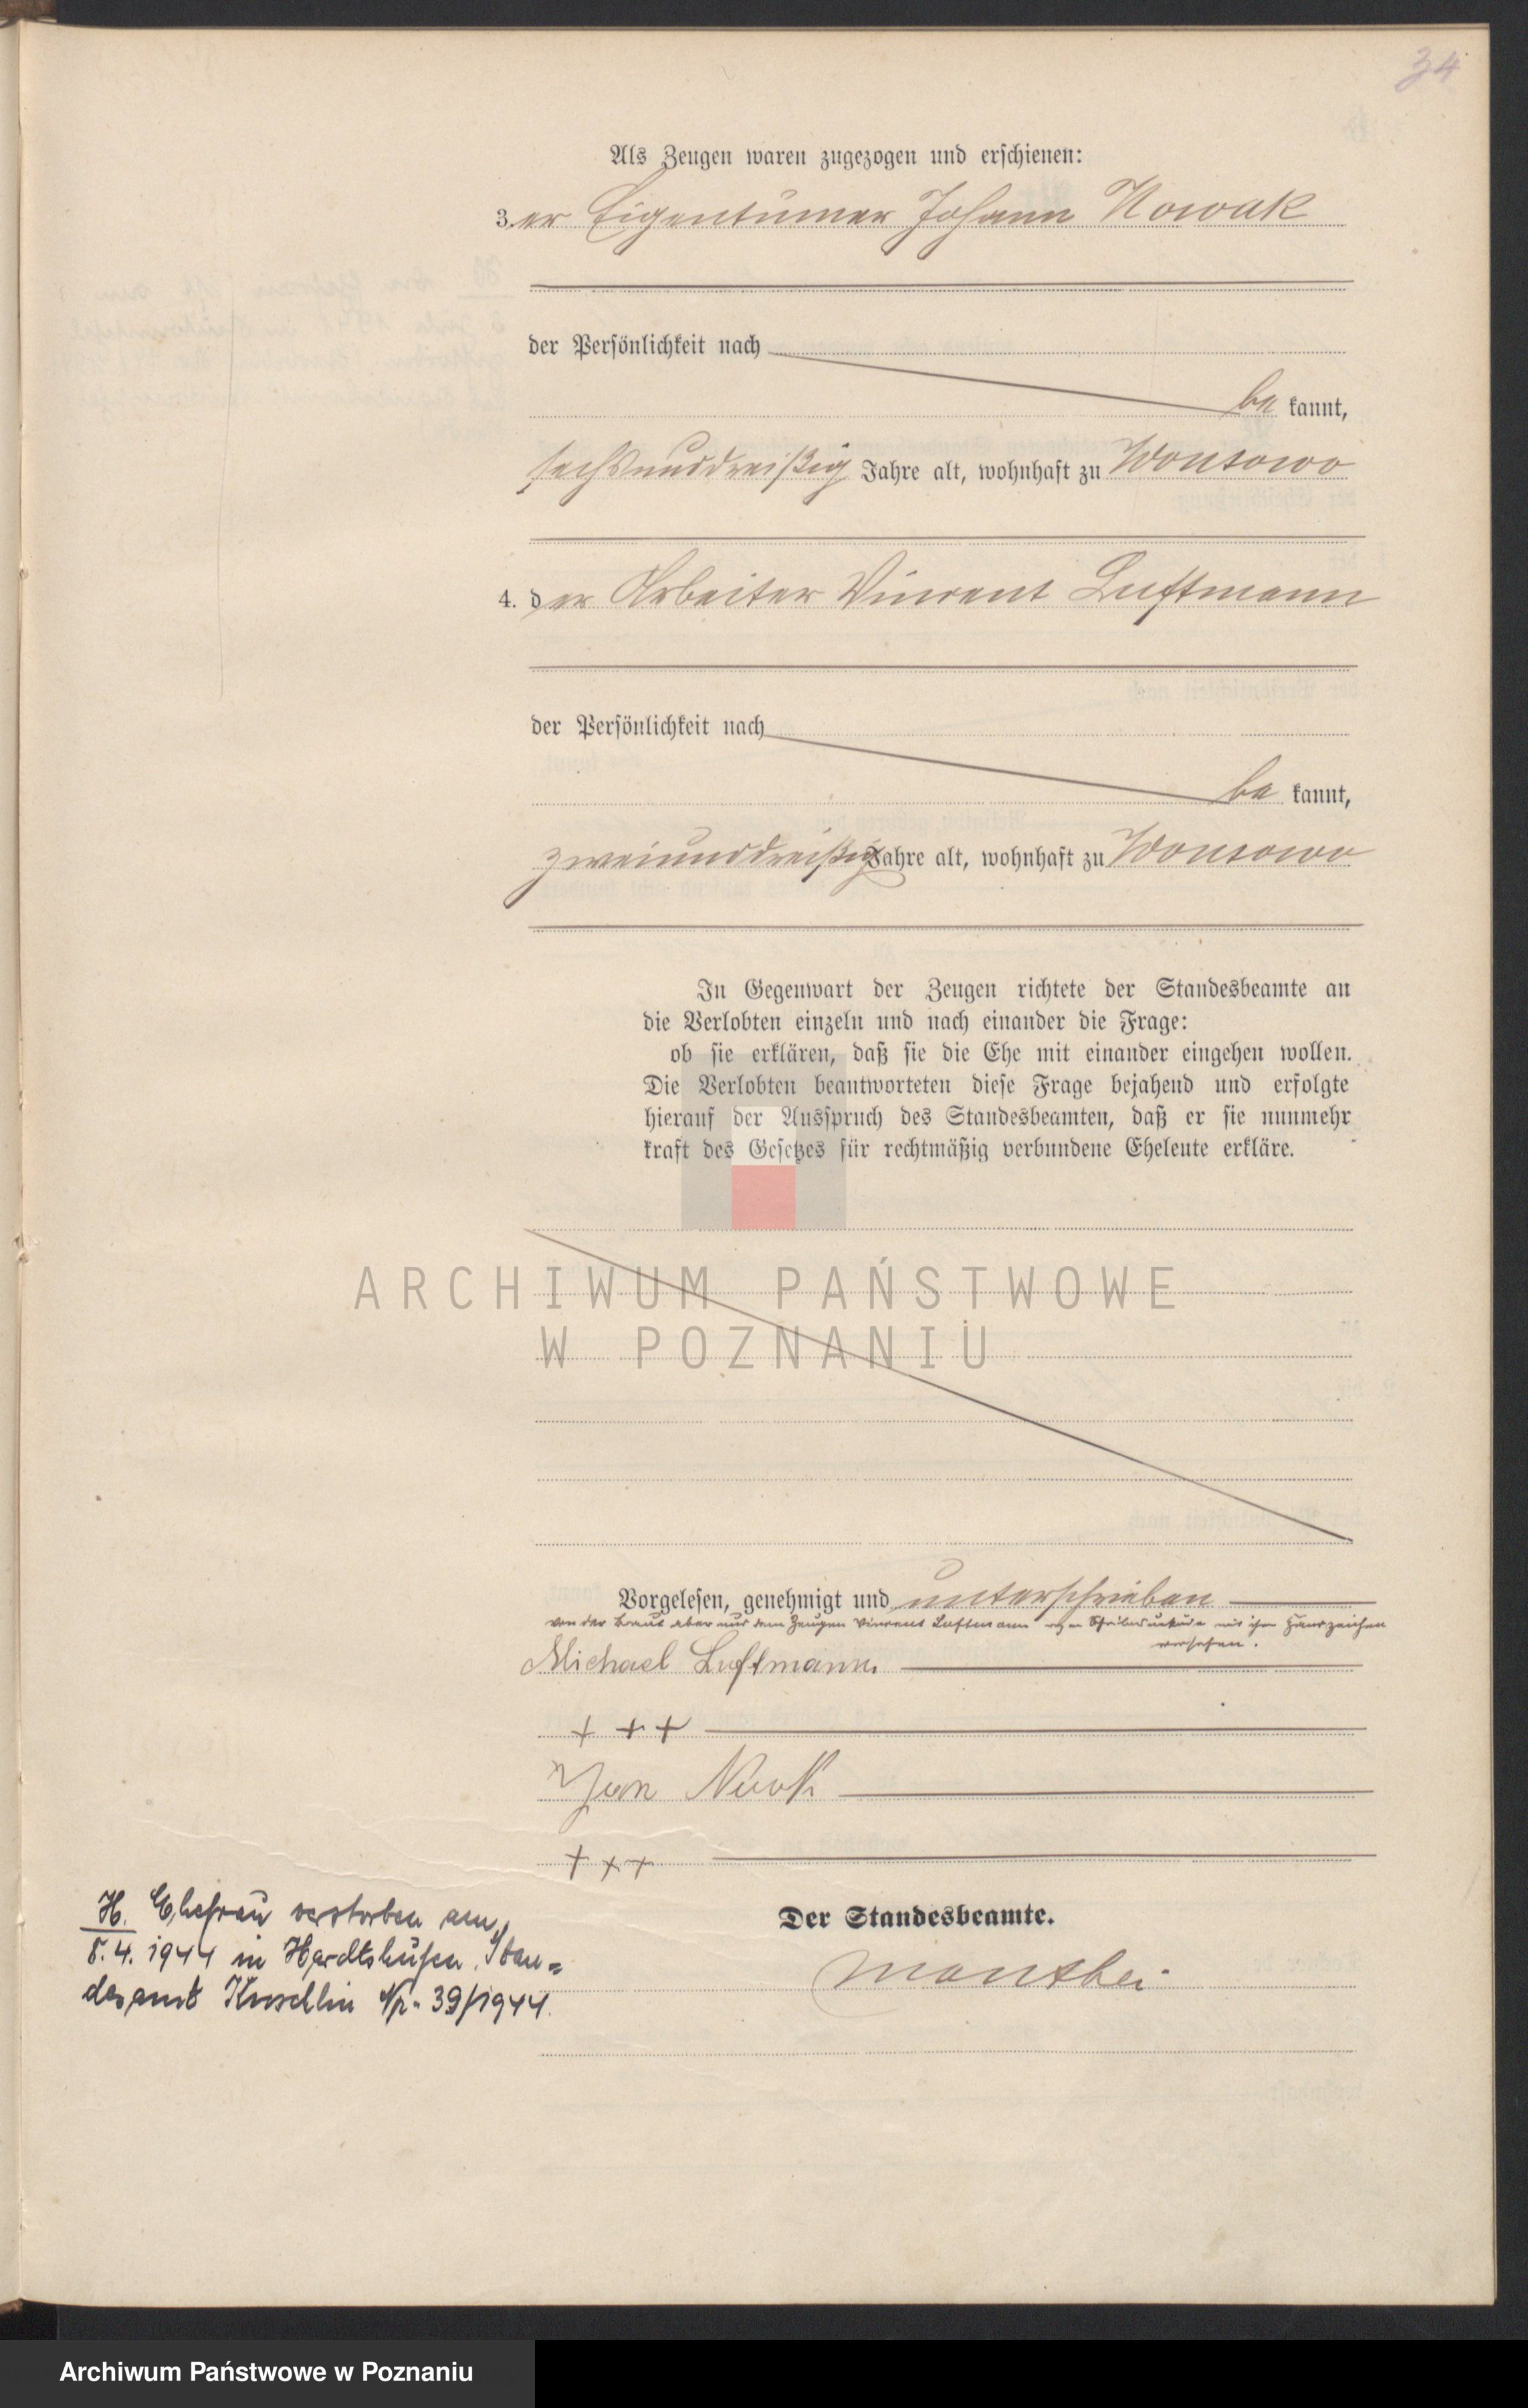 34
Als Zeugen waren zugezogen und erschienen:
3. der Eigentümer Johann Nowak
der Persönlichkeit nach
be kannt,
sechsunddreißig Jahre alt, wohnhaft zu Wonsowo
4. der Arbeiter Vincent Luftmann
der Persönlichkeit nach
be kannt,
zweiunddreißig Jahre alt, wohnhaft zu Wonsowo
In Gegenwart der Zeugen richtete der Standesbeamte an
die Verlobten einzeln und nach einander die Frage:
ob sie erklären, daß sie die Ehe mit einander eingehen wollen.
Die Verlobten beantworteten diese Frage bejahend und erfolgte
hierauf der Ausspruch des Standesbeamten, daß er sie nunmehr
kraft des Gesetzes für rechtmäßig verbundene Eheleute erkläre.
ARCHIWUM PAŃSTWOWE
W POZNANIU
Vorgelesen, genehmigt und unterschrieben
von der Braut aber und dem Zeugen Vincent Luftmann mit ihren Handzeichen
versehen.
Michael Luftmann.
+ + +
Jan
+ + +
H. Ehefrau verstorben am
8.4.1944 in Stan=
desamt Nr. 39/1944.
Der Standesbeamte.
Archiwum Państwowe w Poznaniu